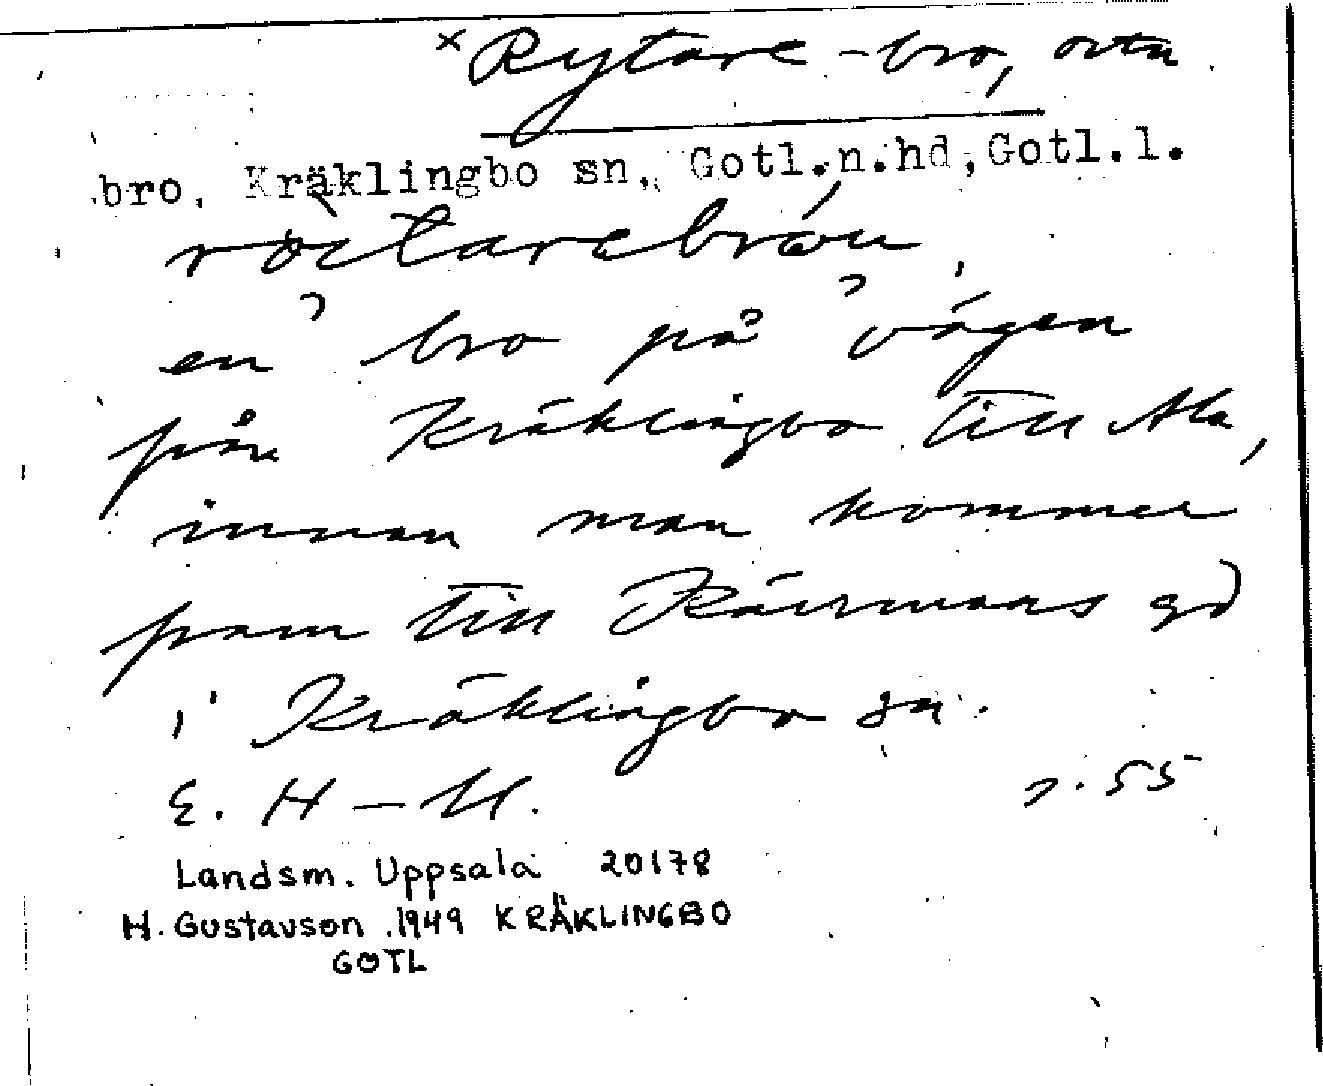 × Rytare-bro, ortn
bro, Kräklingbo sn, Gotl.n.hd, Gotl.l.
en bro på vägen
från Kräklingbo till Ala,
innan man kommer
fram till Kärrmans gd
i Kräklingbo sn.
E. H-M. s. 55
Landsm. Uppsala 20178
H. Gustavson 1949 KRÄKLINGBO
GOTL